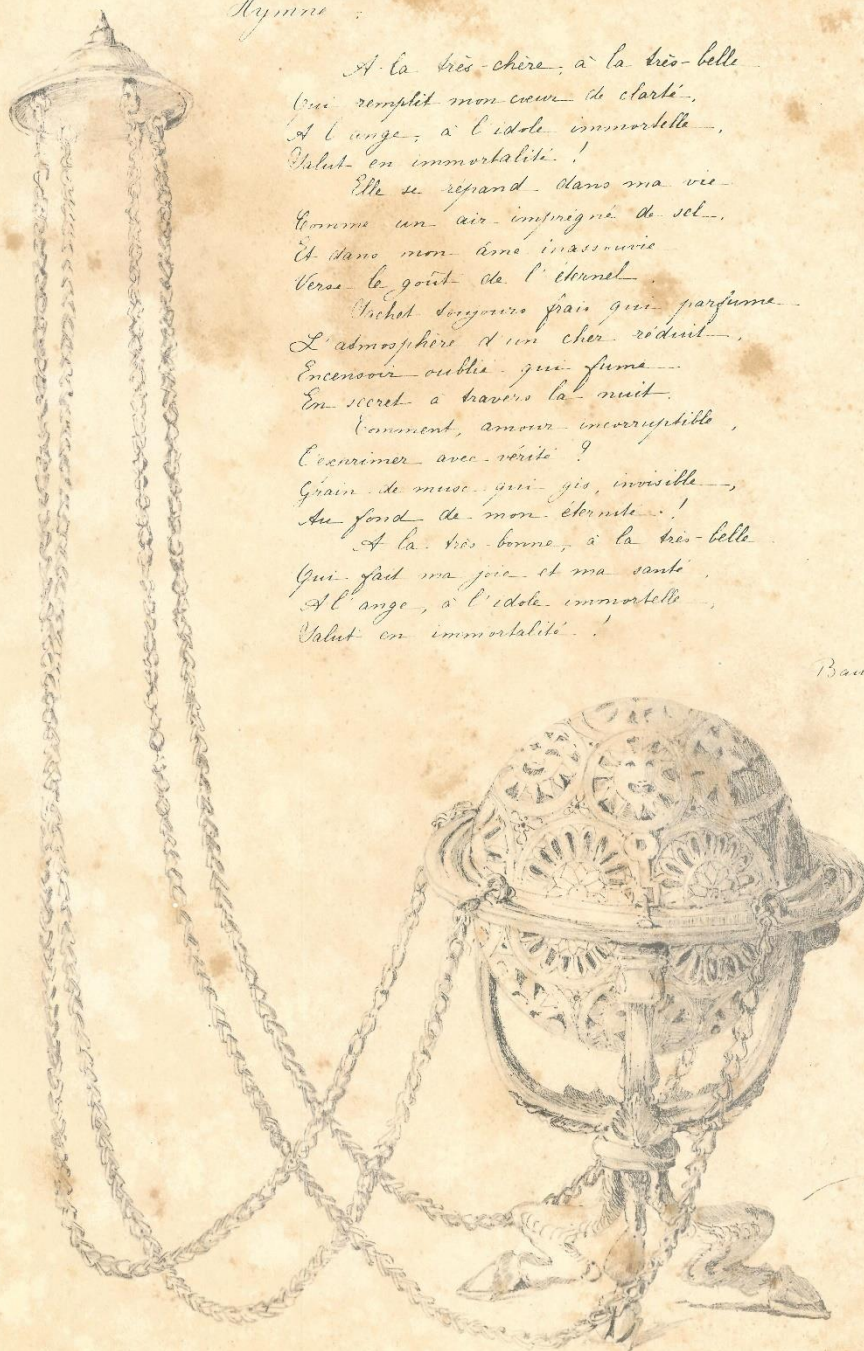 Hymne :
A la très-chère, à la très-belle
Qui remplit mon cœur de clarté,
A l'ange, à l'idole immortelle,
Salut en immortalité !
Elle se répand dans ma vie
Comme un air imprégné de sel,
Et dans mon âme inassouvie
Verse le goût de l'éternel.
Sachet toujours frais qui parfume
L'atmosphère d'un cher réduit,
Encensoir oublié qui fume
En secret a travers la nuit,
Comment, amour incorruptible,
T'exprimer avec vérité ?
Grain de musc qui gis, invisible,
Au fond de mon éternité !
A la très bonne, à la très-belle
Qui fait ma joie et ma santé,
A l'ange, à l'idole immortelle,
Salut en immortalité !
Bau